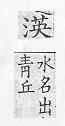 渶
水名出
青丘